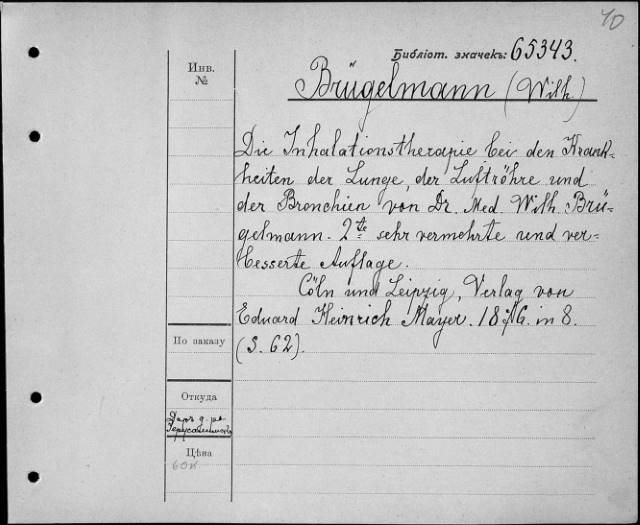 10
Библіот. значекъ: 65343.
Инв.
№
Brügelmann (Wilh)
Die Inhalationstherapie bei den Krank-
heiten der Lunge, der Luftröhre und
der Bronchien von Dr. Med. Wilh. Brü-
gelmann. 2te sehr vermehrte und ver-
besserte Auflage.
Cöln und Leipzig, Verlag von
Eduard Heinrich Mayer. 1876. in 8.
(S. 62).
По заказу
Откуда
Даръ д-ра
Цѣна
60к